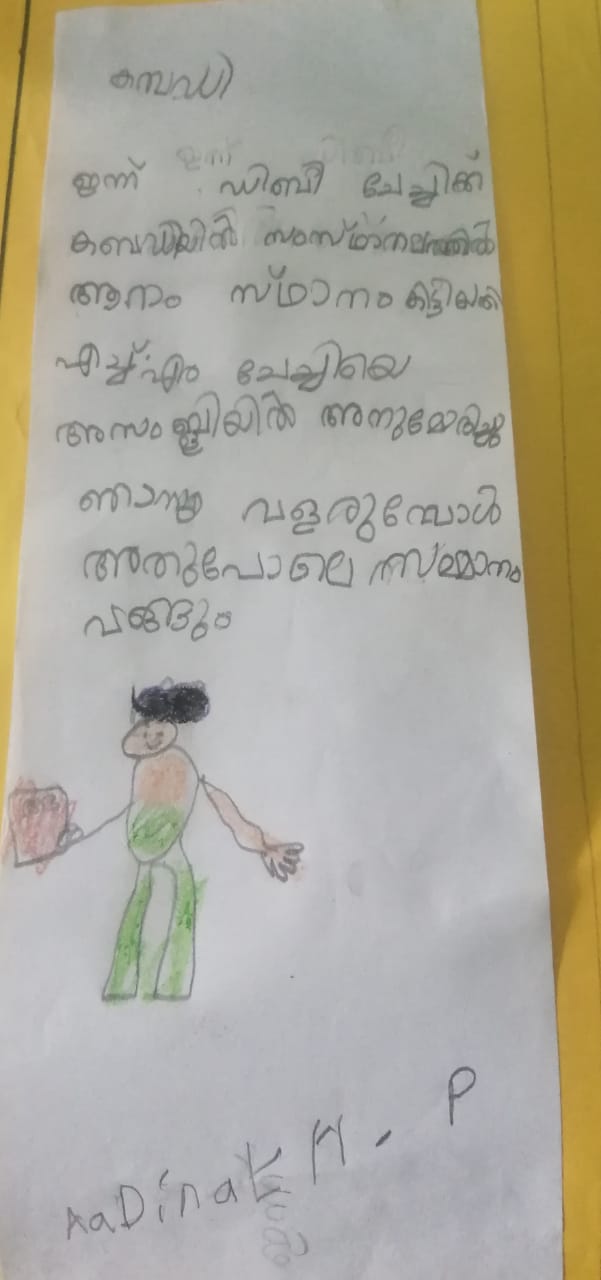 കബഡി
ഇന്ന് ഡിബീ ചേച്ചിക്ക്
കബഡിയിൽ സംസ്ഥാനതലത്തിൽ
ആറാം സ്ഥാനം കിട്ടിയത്
എച്ച്എം ചേച്ചിയെ
അസംബ്ലിയിൽ അനുമോദിച്ചു
ഞാനും വളരുമ്പോൾ
അതുപോലെ സമ്മാനം
വാങ്ങും
AaDinath M. P